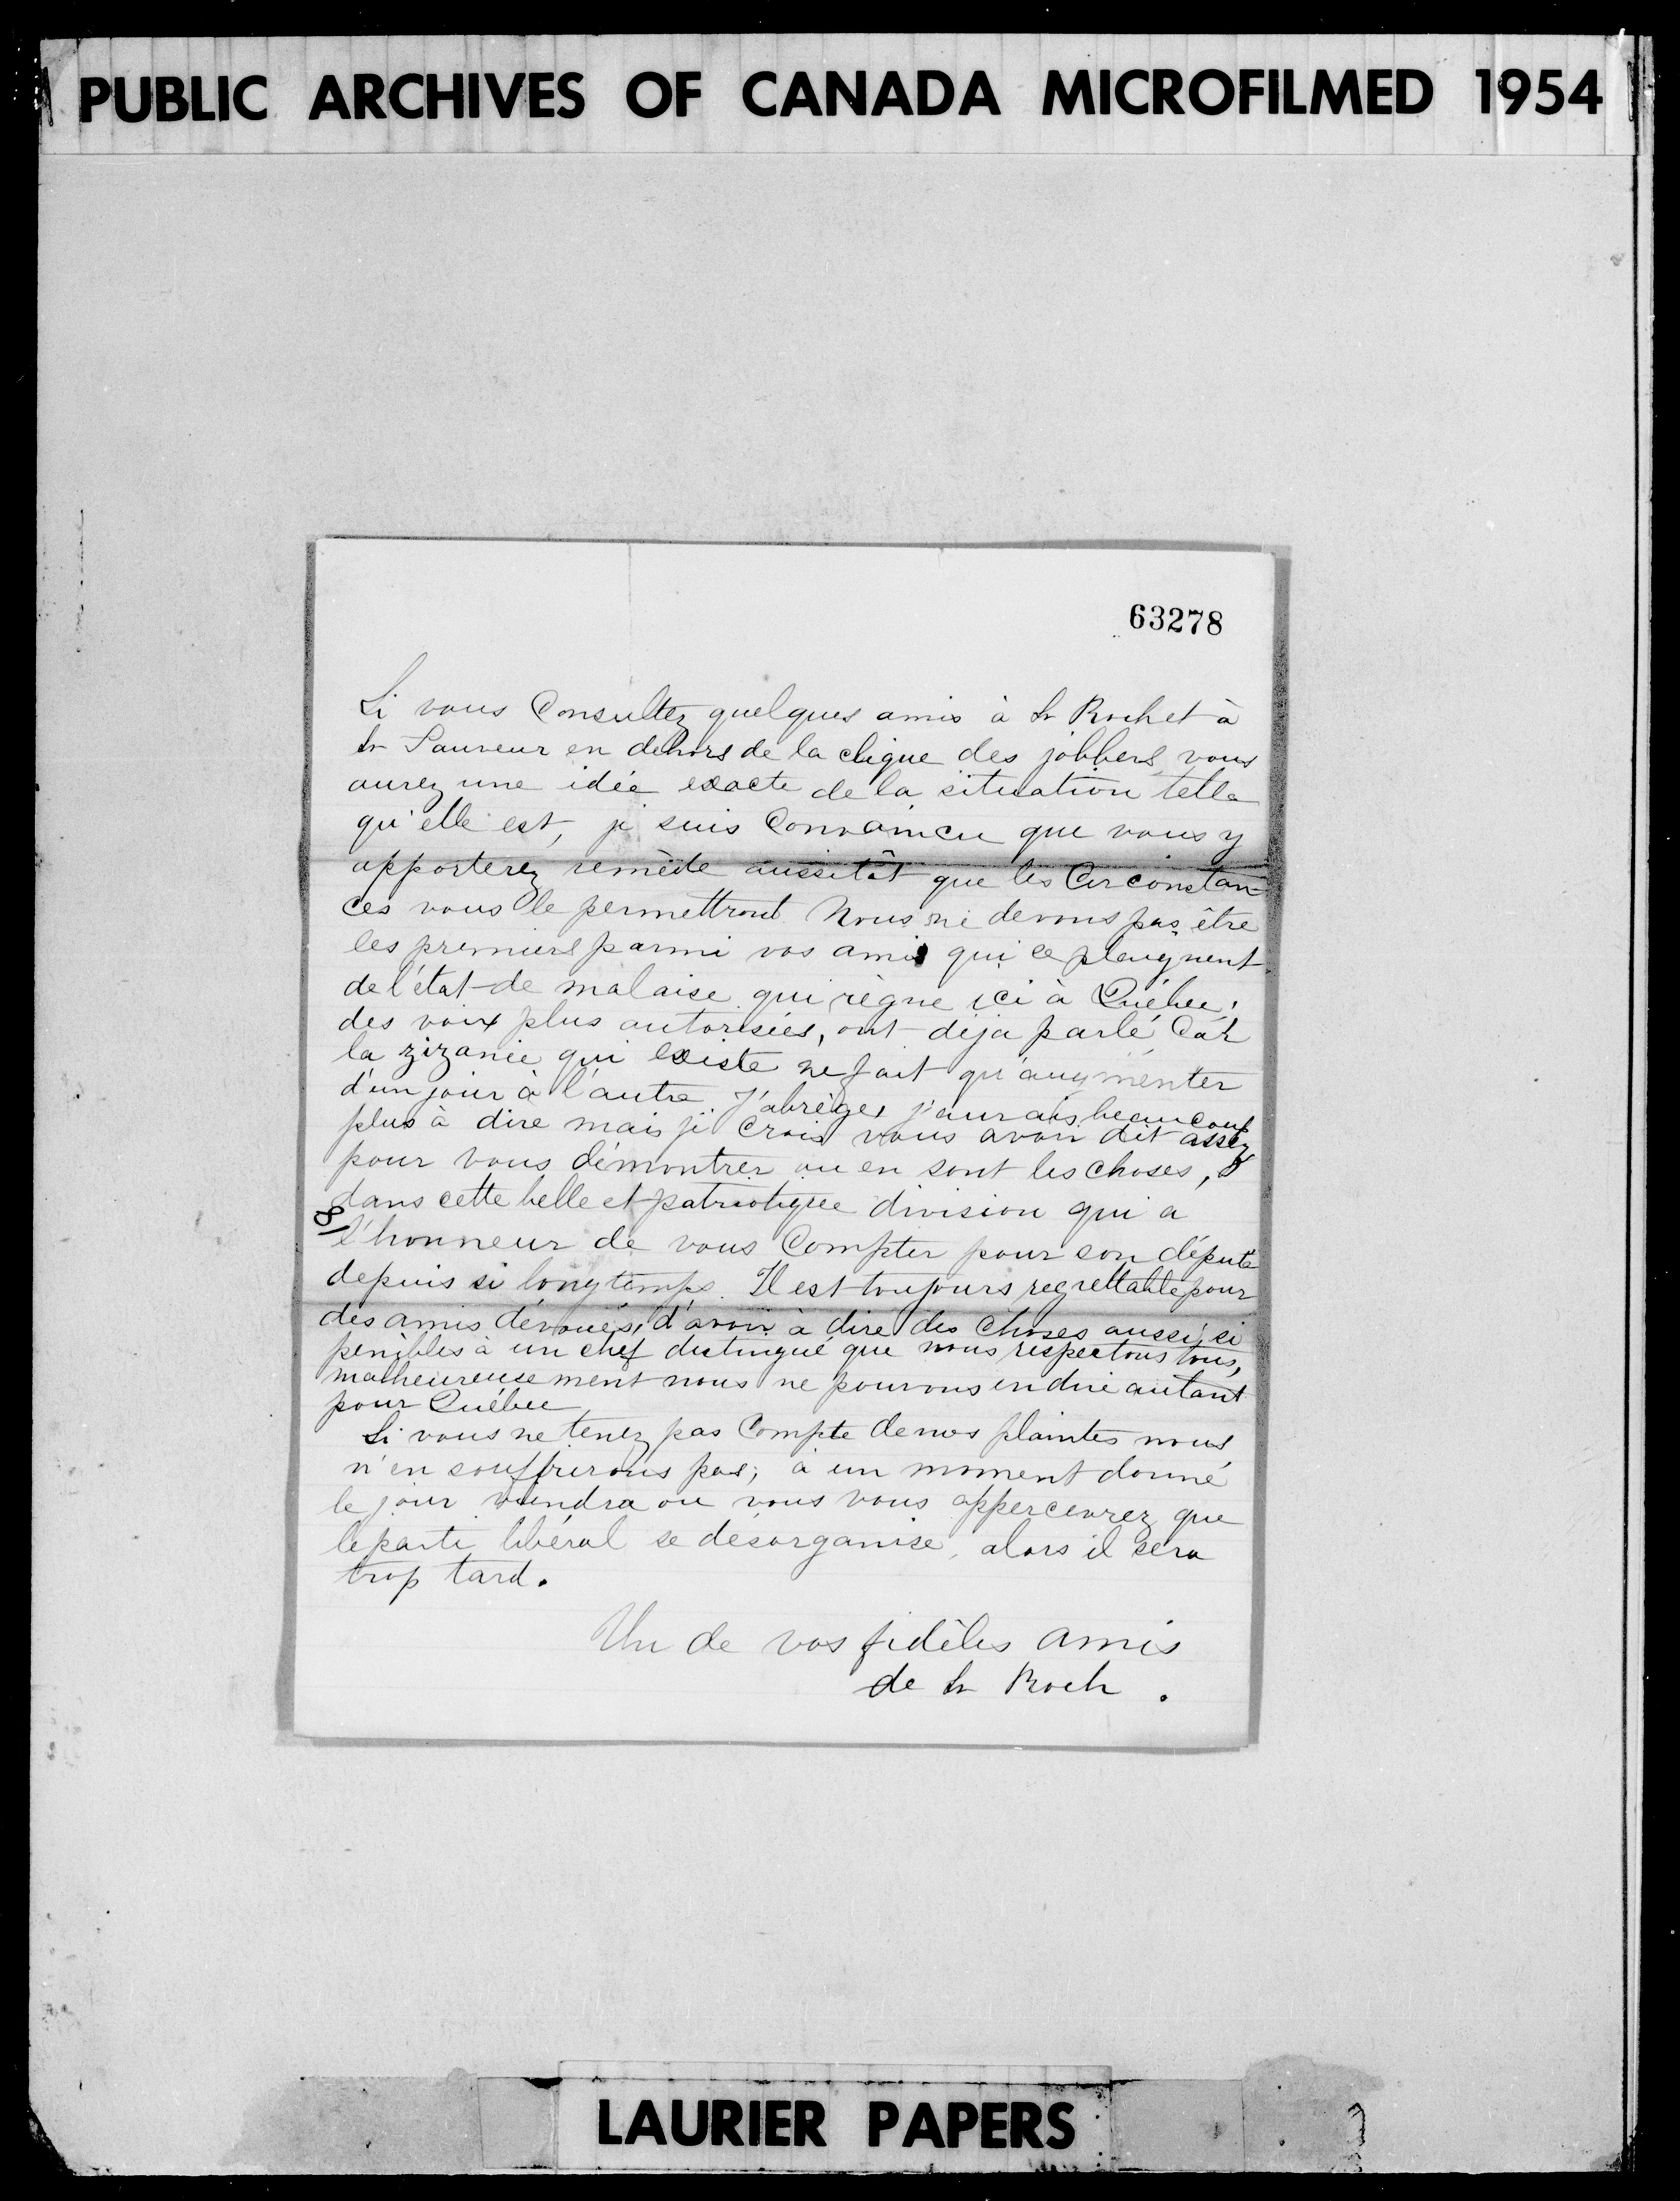 PUBLIC ARCHIVES OF CANADA MICROFILMED 1954
63278
Si vous Consultez quelques amis à St Roch et à
St Sauveur en dehors de la clique des jobbers, vous
aurez une idée exacte de la situation telle
qu'elle est, je suis Convaincu que vous y
apporterez remède aussitôt que les Circonstan-
ces vous le permettront. Nous ne devons pas être
les premiers parmi vos amis qui ce plaignent
de l'état de malaise qui règne ici à Québec,
des voix plus autorisées, ont déja parlé Car
la zizanie qui existe ne fait qu'augmenter
d'un jour à l'autre J'abrège, j'aurais beaucoup
plus à dire mais je Crois vous avoir dit assez
pour vous démontrer ou en sont les choses,
dans cette belle et patriotique division qui a
l'honneur de vous Compter pour son député
depuis si longtemps. Il est toujours regrettable pour
des amis dévoués, d'avoir à dire des Choses aussi si
penibles à un chef distingué que nous respectons tous,
malheureusement nous ne pouvons en dire autant
pour Québec
Si vous ne tenez pas Compte de nos plaintes nous
n'en souffrirons pas, à un moment donné
le jour viendra ou vous vous appercevrez que
le parti libéral se désorganise, alors il sera
trop tard.
Un de vos fidèles amis
de St Roch.
LAURIER PAPERS